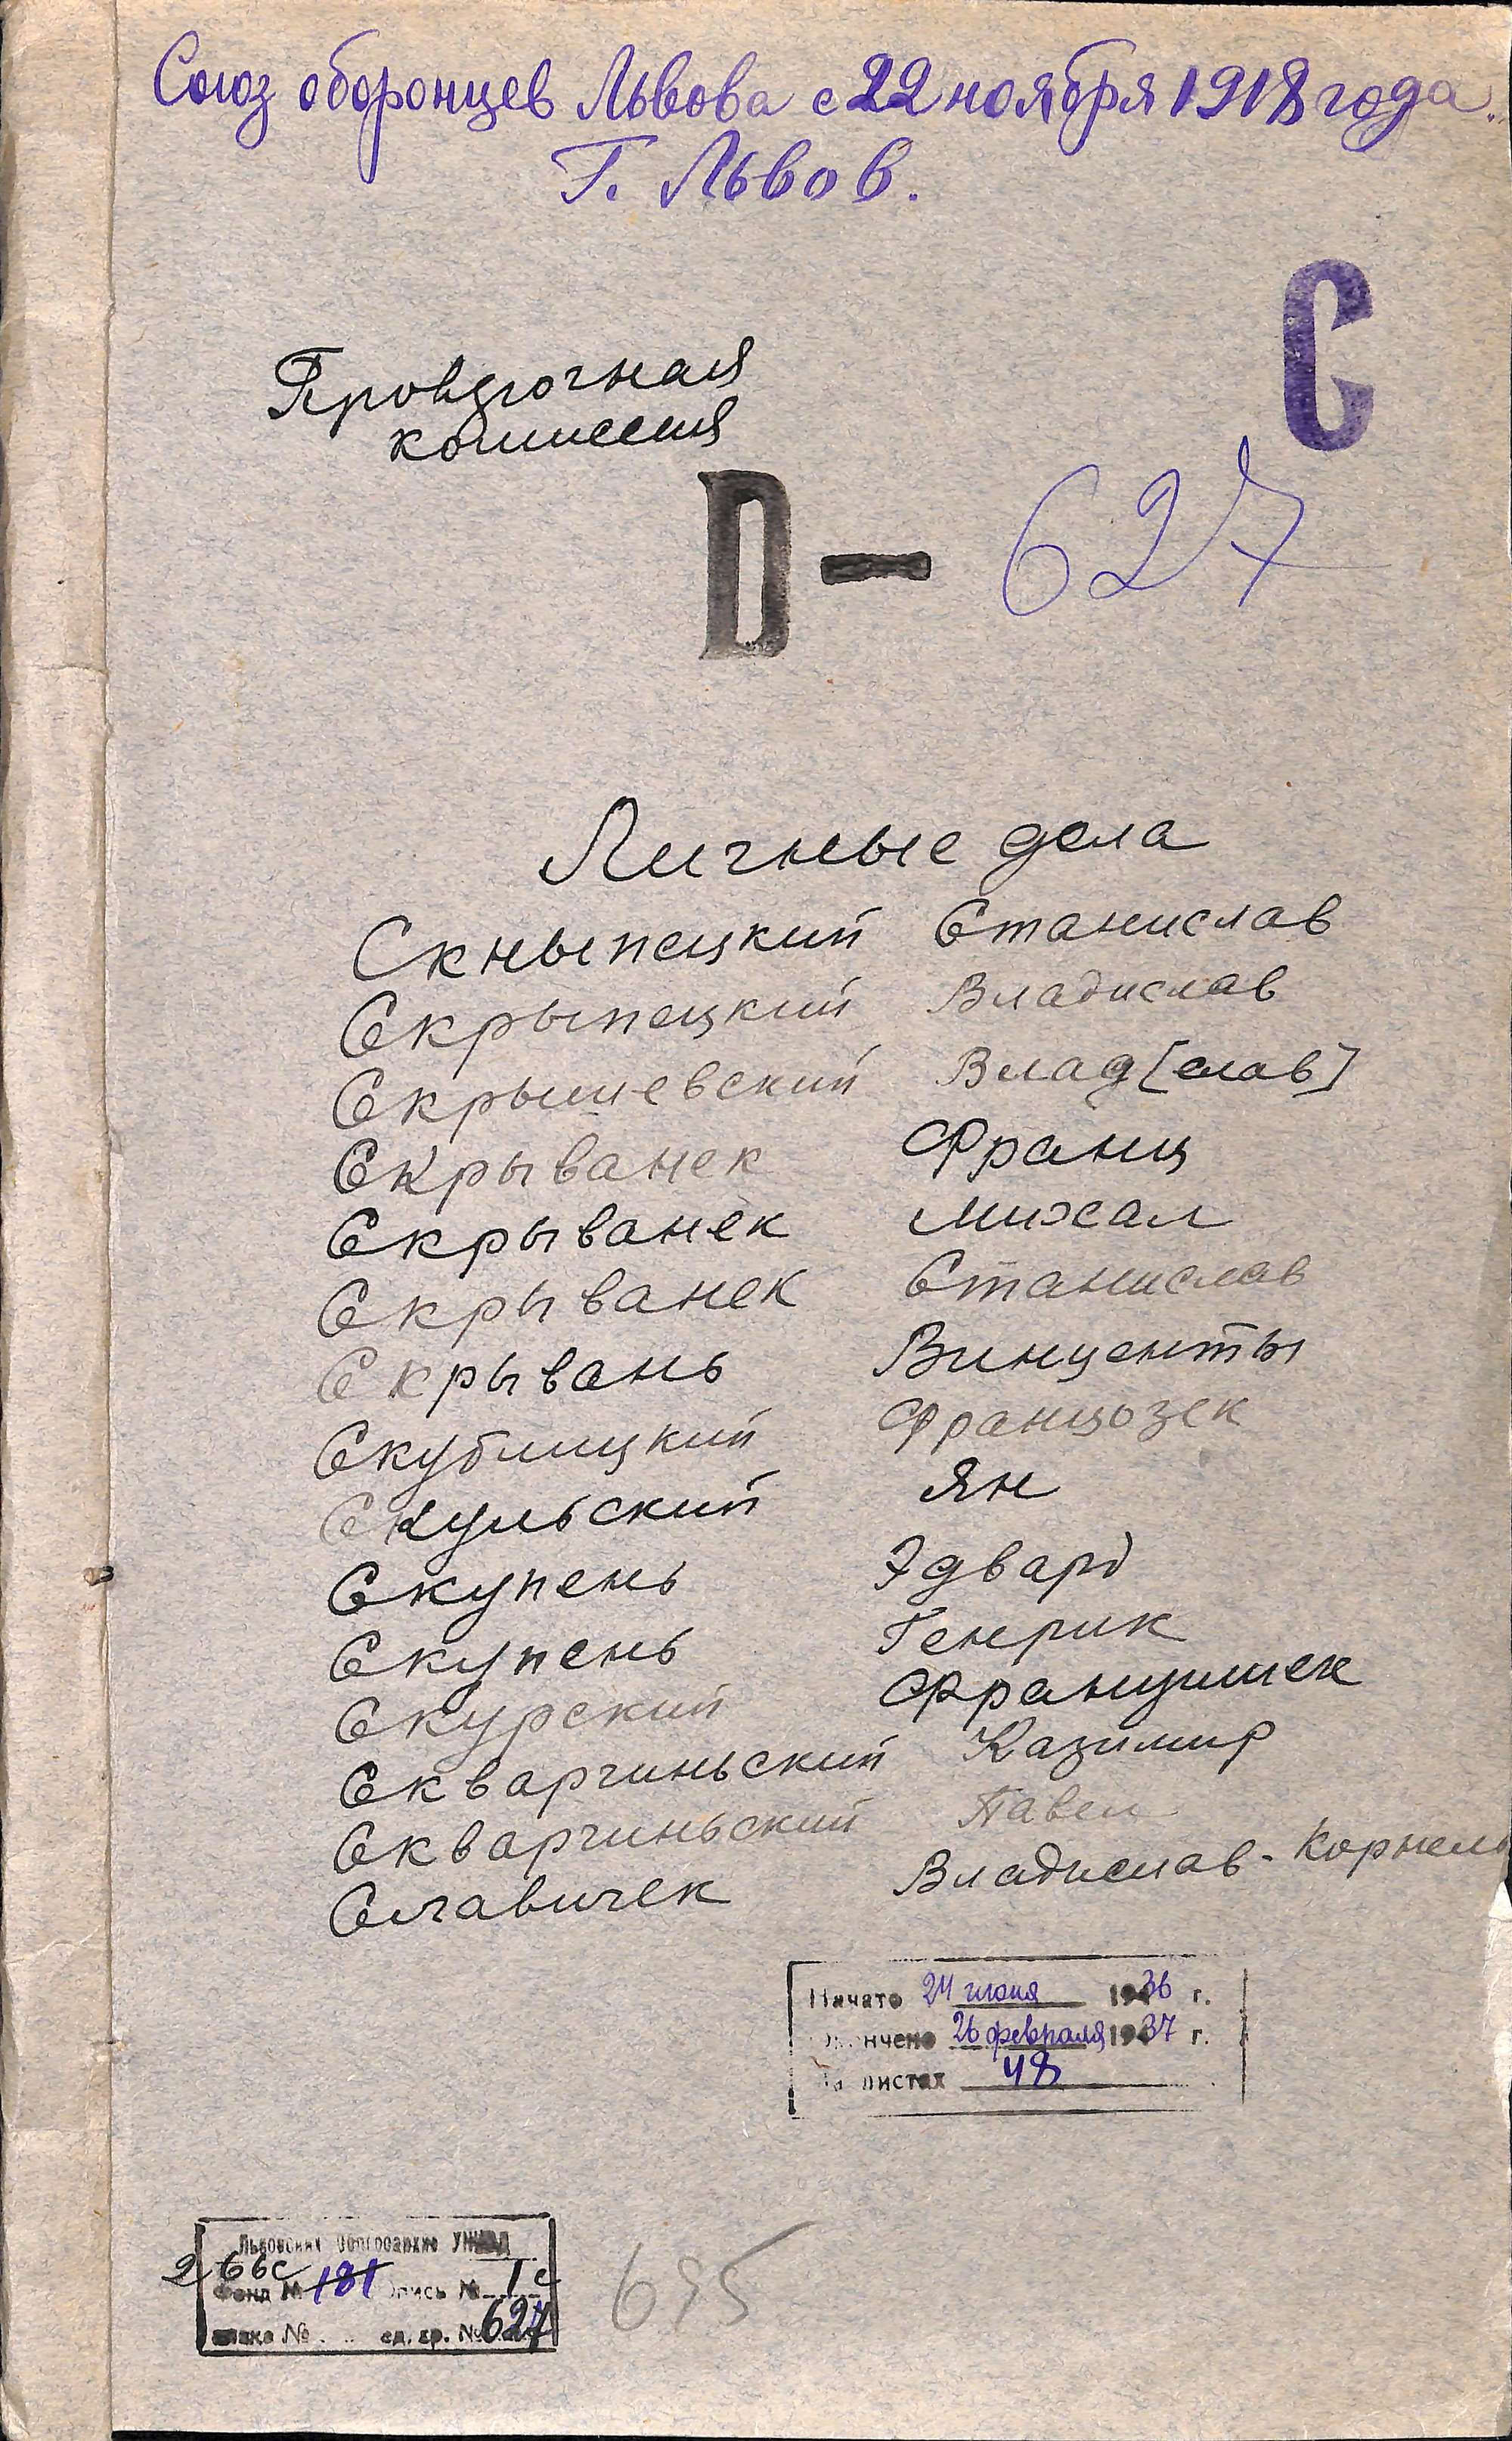 Союз оборонцев Львова с 22 ноября 1918 года.
Г. Львов.
С
Проверочная
комиссия
D — 627
Личные дела
Скныпецкий Станислав
Скрыпецкий Владислав
Скрышевский Влад[слав]
Скрыванек Франц
Скрыванек Михал
Скрыванек Станислав
Скрывань Винценты
Скублицкий Францозек
Скульский Ян
Скупень Эдвард
Скупень Генрик
Скурский Францишек
Скварчиньский Казимир
Скварчиньский Павел
Славичек Владислав-Корнель
Начато 24 июня 1936 г.
Окончено 26 февраля 1937 г.
На листах 48
Львовский Облгосархив УНКВД
266с
Фонд № 181 Опись № 1с
вязка № ед. хр. № 627
695